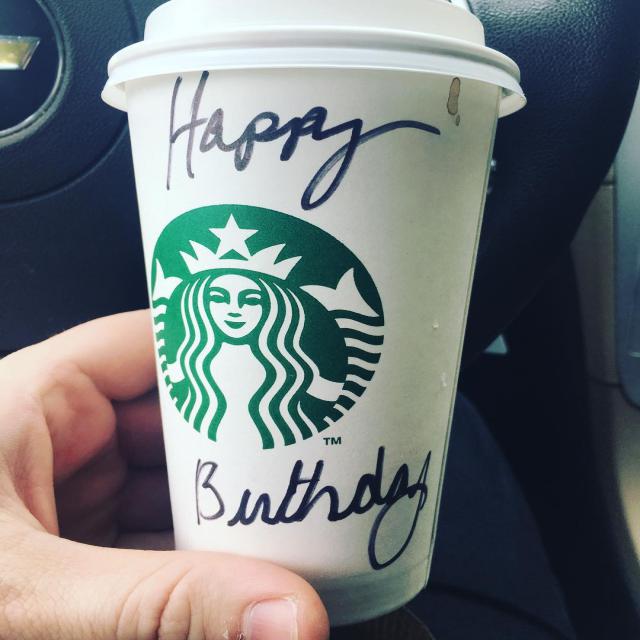 Happy
TM
Birthday